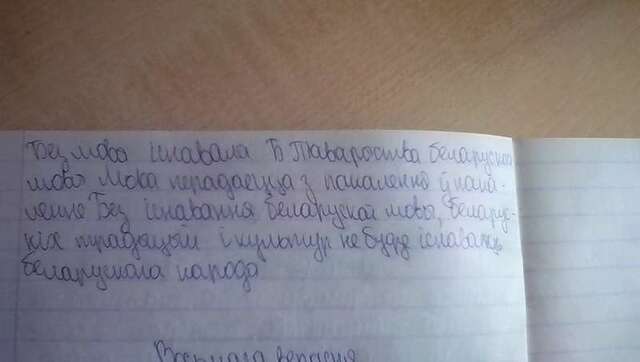 Без мово існавала б Таварства беларускай
мово Мова перадаецца з пакалення ў пака-
ленне Без існавання беларускай мовы, беларус-
кіх традыцый і культур не буду існаваць
беларускага народа
Восьмага верасня